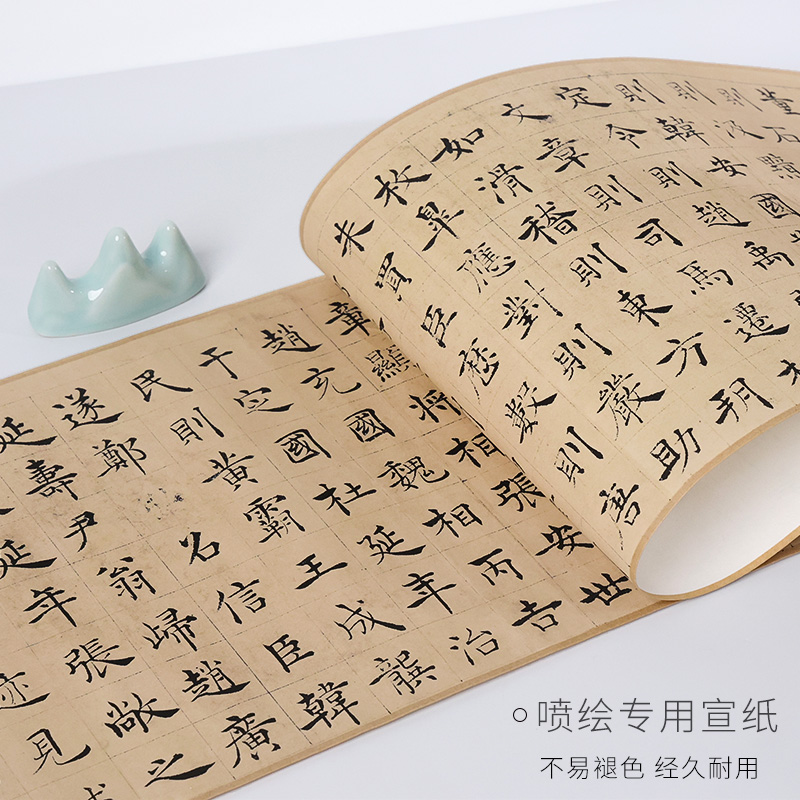 董
則石
則汲黯
則韓安國
定令則趙禹
文章則司馬遷
如滑稽則東方朔
枚皐應對則嚴助
朱買臣歷數則唐
章顯將相張安世
趙充國魏相丙吉
于定國杜延年治
民則黃霸王成龔
遂鄭名信臣韓
延壽尹翁歸趙廣
延年張敞之
迹見
喷绘专用宣纸
不易褪色 经久耐用